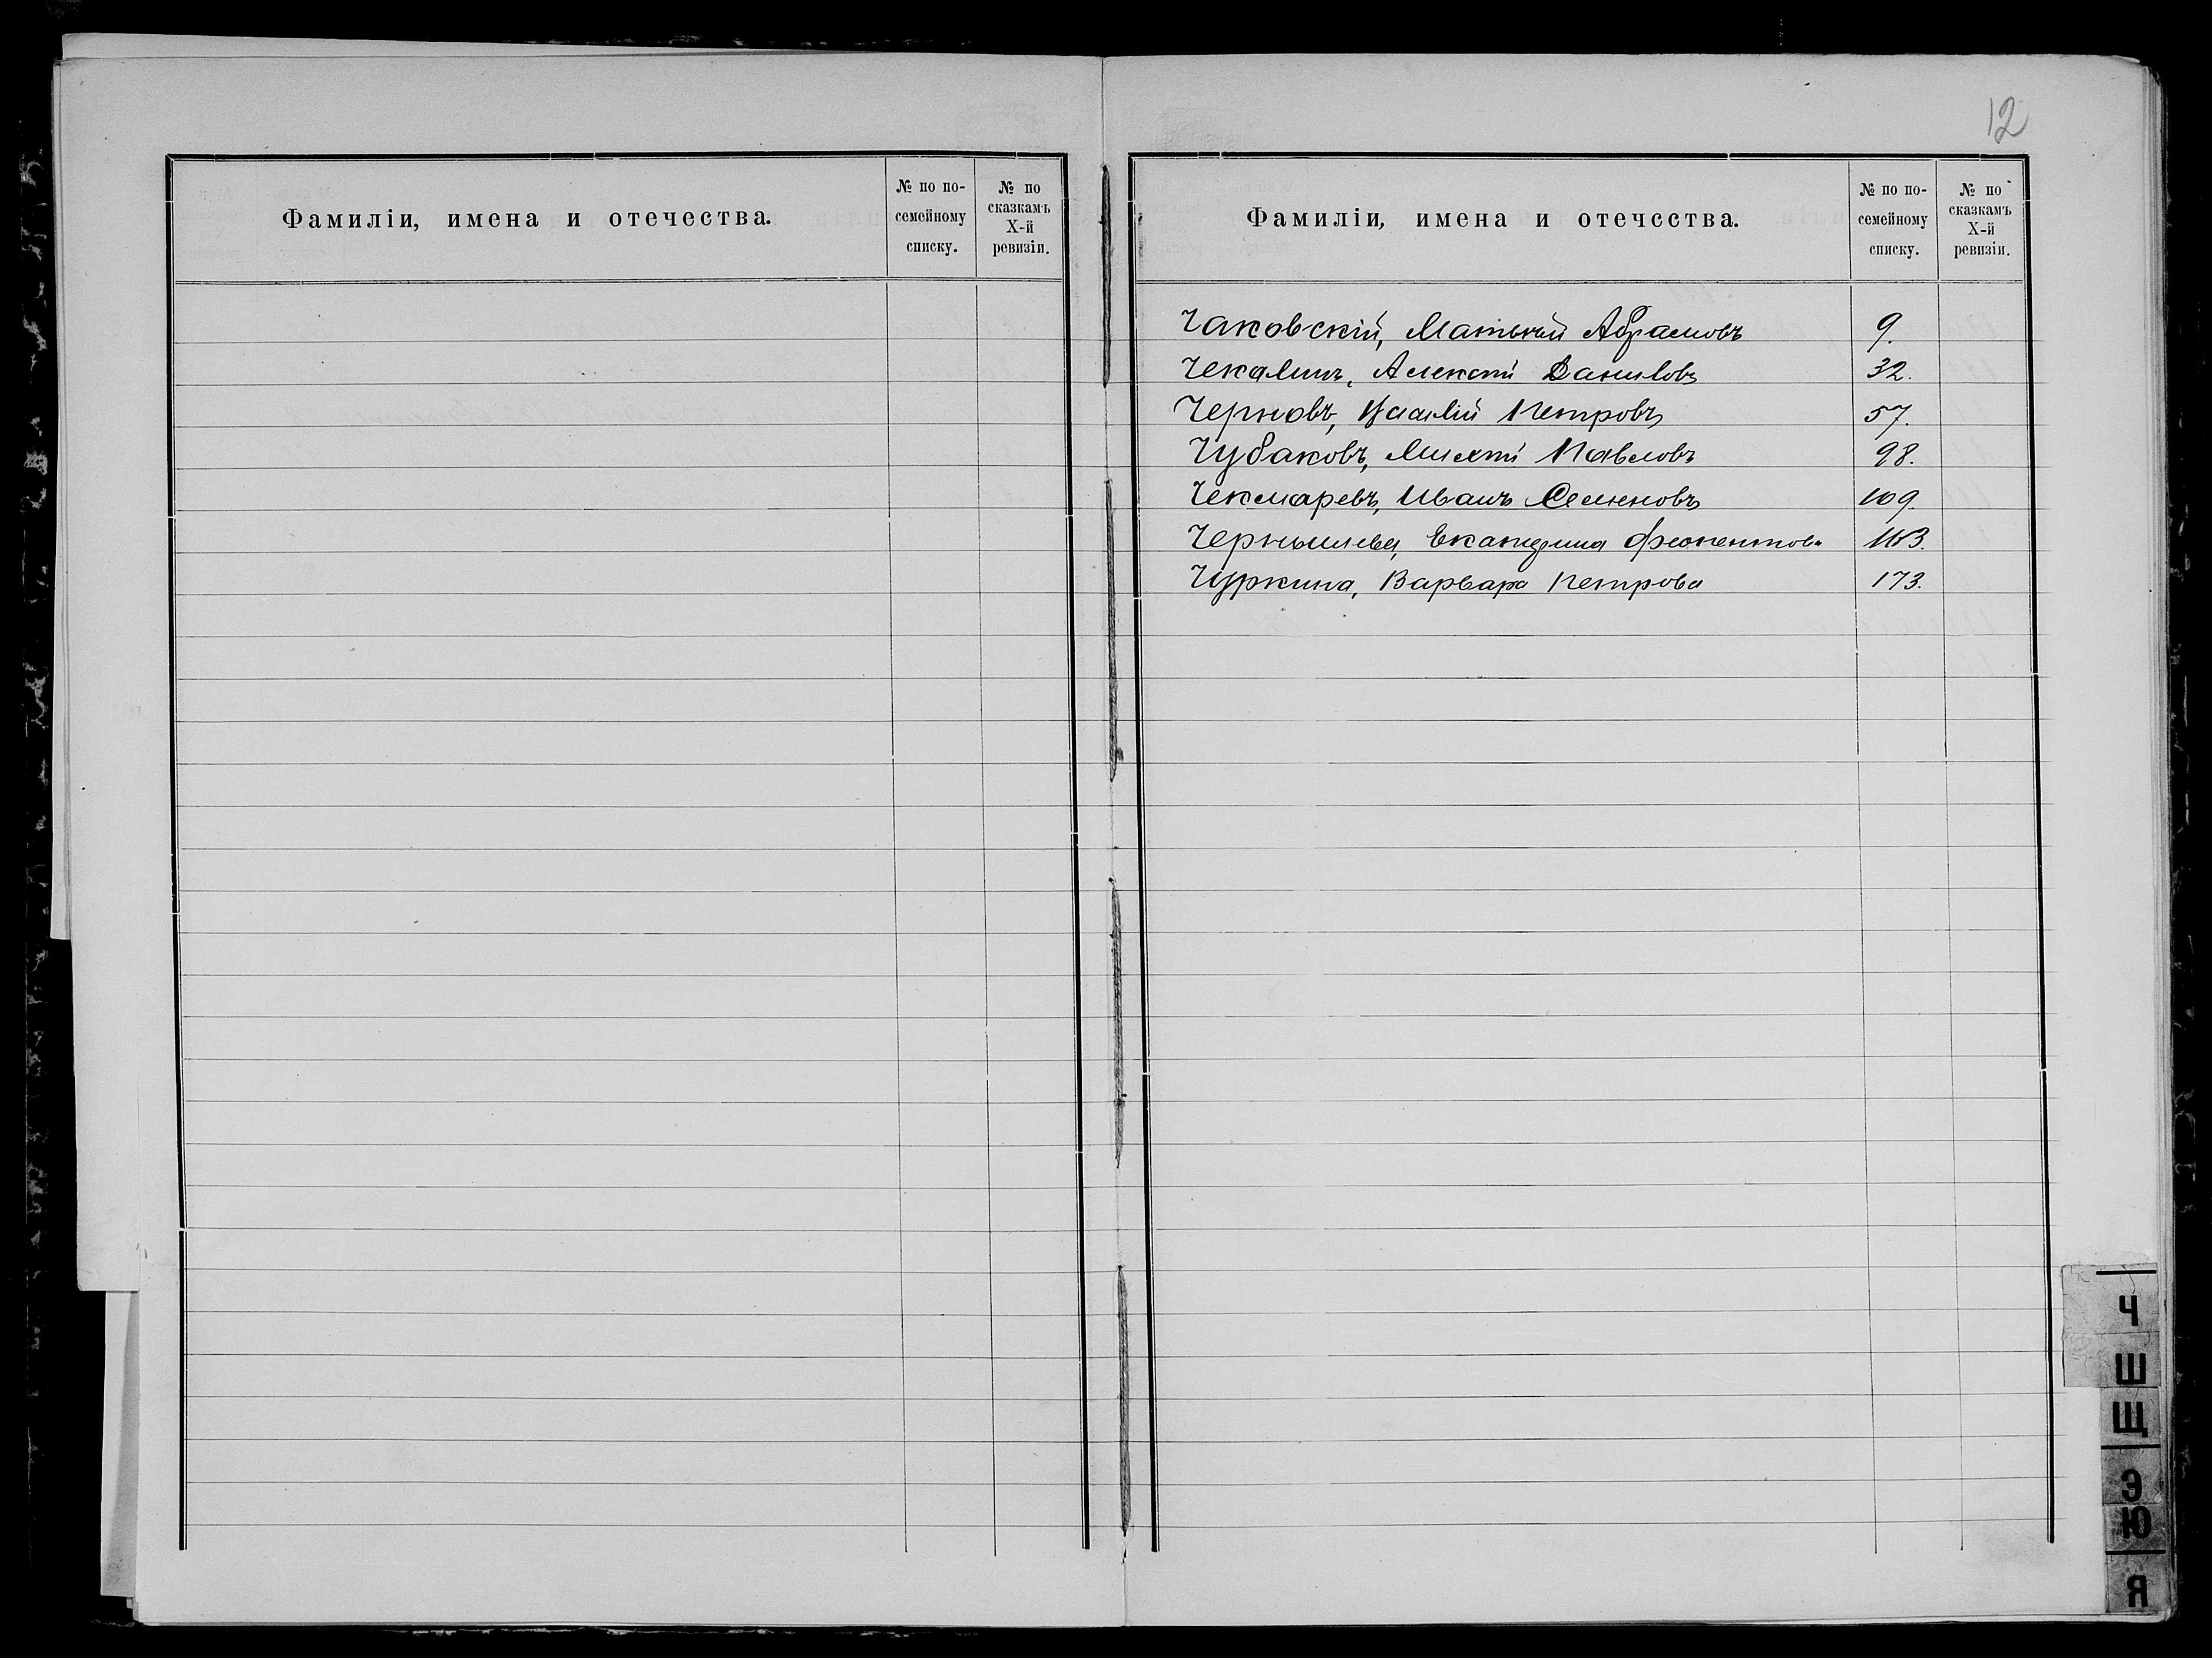 12
Фамиліи, имена и отечества.
№ по по-
семейному
списку.
№ по
сказкамъ
X-й
ревизіи.
Фамиліи, имена и отечества.
№ по по-
семейному
списку.
№ по
сказкамъ
X-й
ревизіи.
Чаковскій, Матвѣй Абрамовъ 9.
Чекалинъ, Алексѣй Даниловъ 32.
Черновъ, Василій Петровъ 57.
Чубаковъ, Михѣй Павловъ 98.
Чекмаревъ, Иванъ Семеновъ 109.
Чернышева, Екатерина 163.
Чуркина, Варвара Петрова 173.
Ч
Ш
Щ
Э
Ю
Я